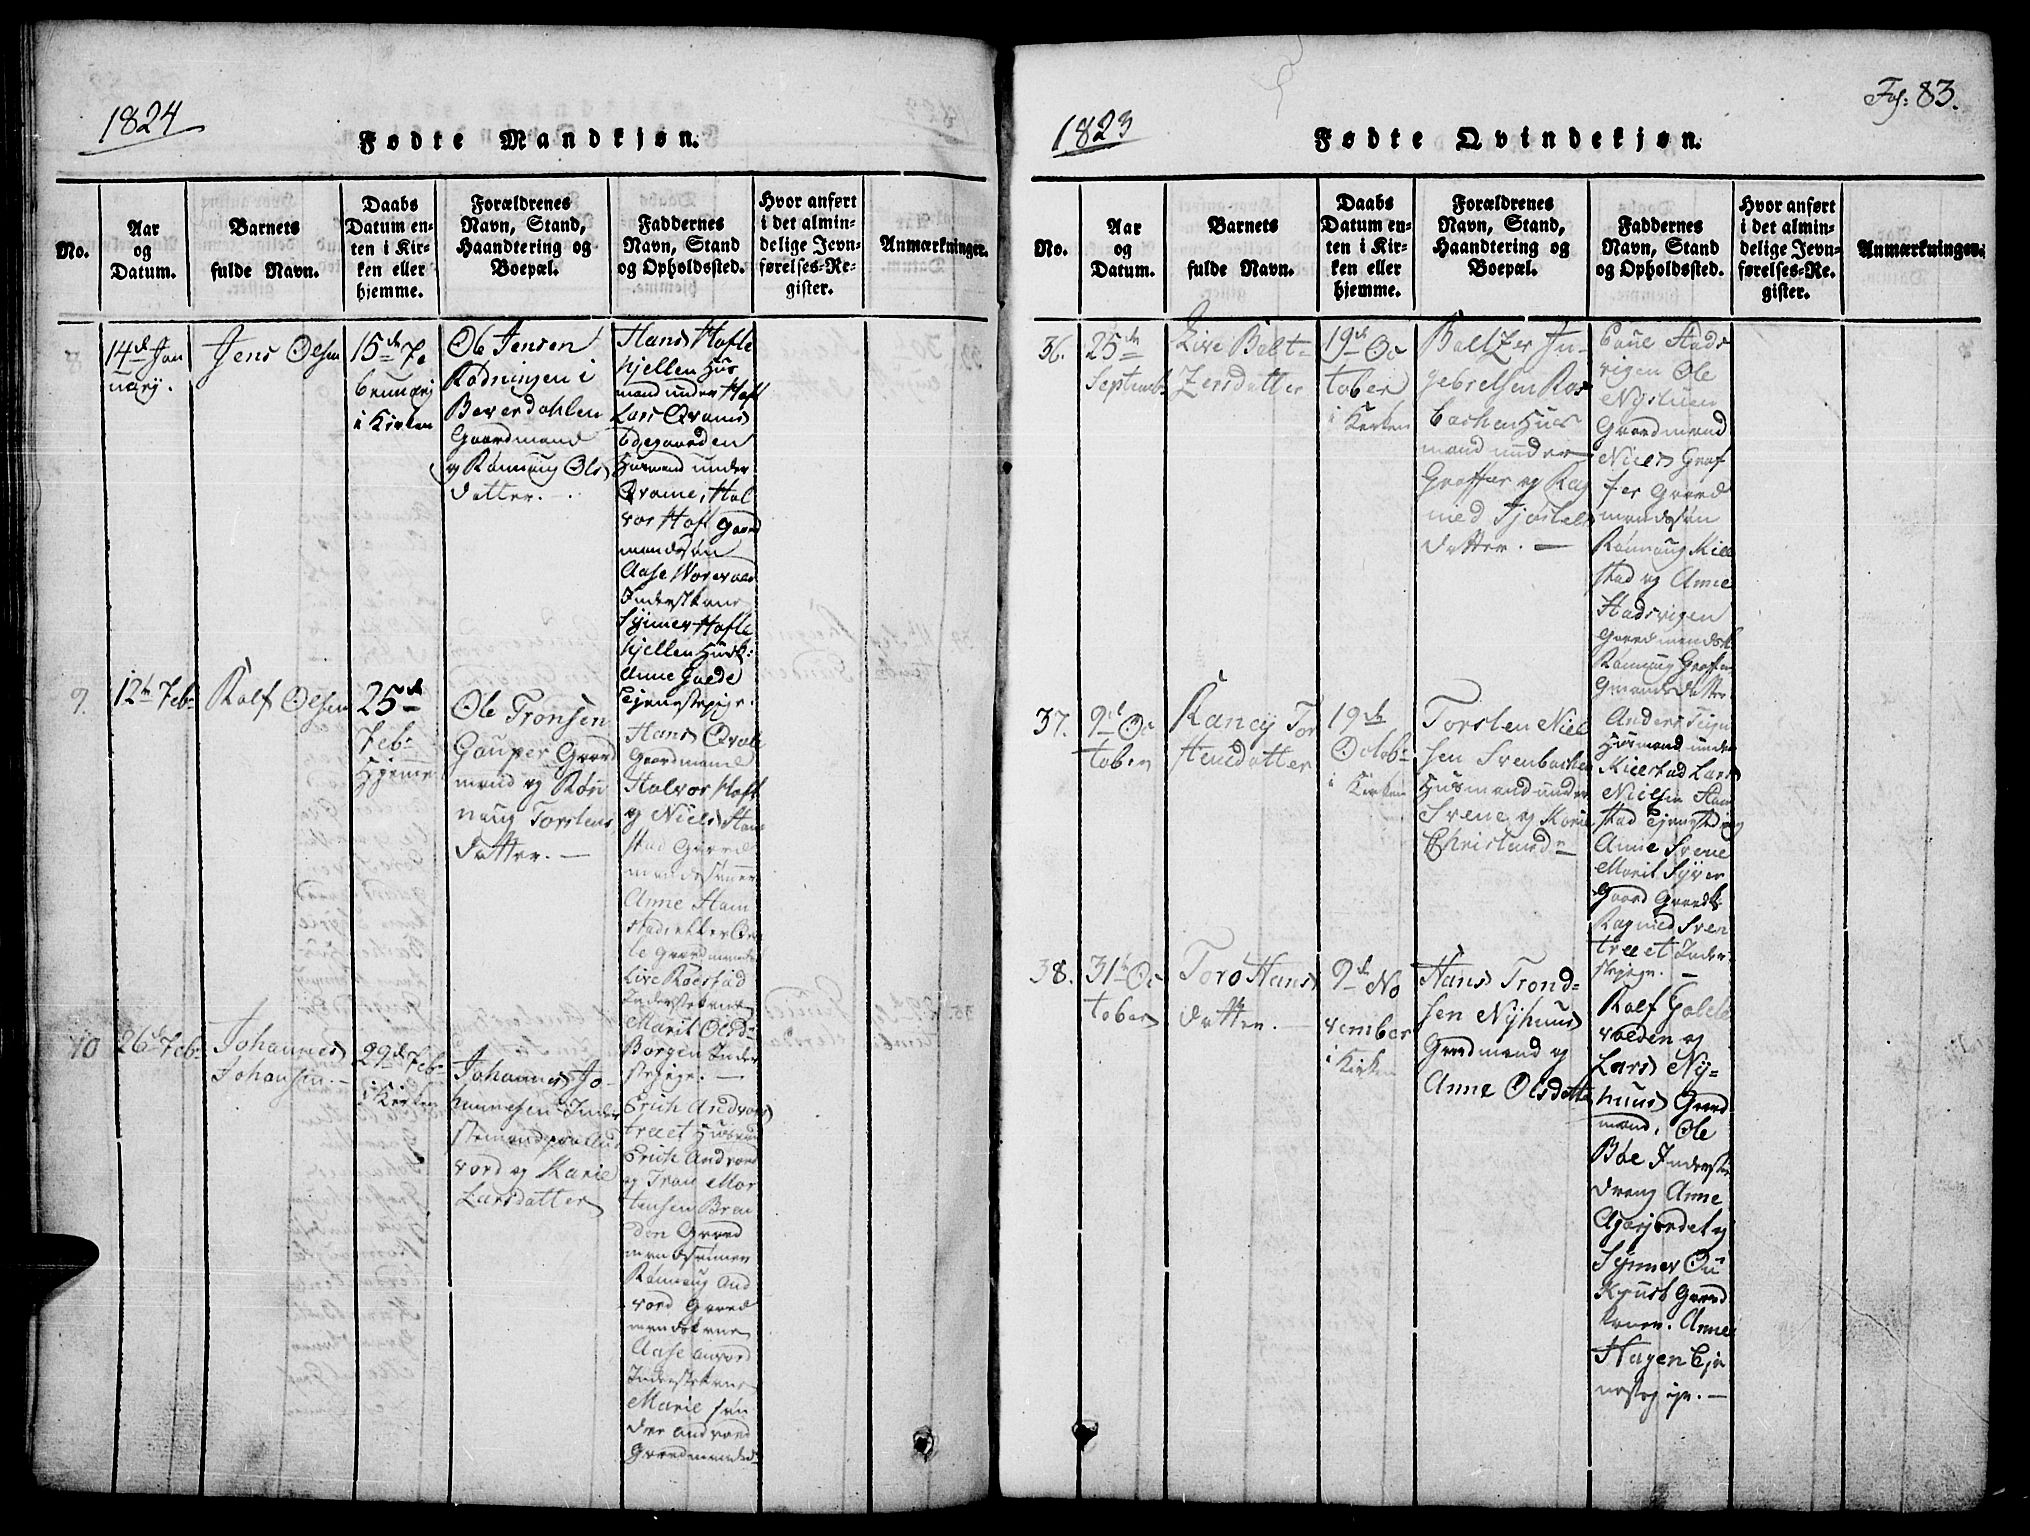 1824
Fødte Mandkjøn.
No.
Aar
og
Datum.
Barnets
fulde Navn.
Daabs
Datum en-
ten i Kir-
ken eller
hjemme.
Forældrenes
Navn, Stand,
Haandtering og
Boepæl.
Faddernes
Navn, Stand
og Opholdssted.
Hvor anført
i det almin-
delige Jevn-
førelses-Re-
gister.
Anmærkninger.
8
14d Jan
uarij.
Jens Olsen
15de Fe
bruarij
i Kirken
Ole Jensen
Rødningen i
Beverdahlen
Gaardmand
og Rønnaug Ols
datter.
Hans Hofle
hjellen Hus
mand under Hofl
Lars Qvams
Ødegaarden
Husmand under
Qvame, Hal
vor Hofl Gaard
mandssøn
Aase
Inderstkone
Synnev Hofle
hjellen Husk:
Anne Galde
Tjenstepige.
9.
12te Feb:
Rolf Olsen
25de
Feb:
Hjemme
Ole Tronsen
Gaupar Gaard
mand og Røn
naug Torstens
datter. —
Hans Qvale
Gaardmand
Halvor Hofl
og Niels Ham
stad Gaard
mandssønner
Anne Ham
stad
Gaardmands
Live Røestad
Inderstkone
Marit Olsd:
Borgen Inder
stpige. —
10
26d Feb:
Johannes
Johansen. —
29de Feb:
i Kirken
Johannes Jo-
hannesen Inder
stemand paa And
vord og Marie
Larsdatter
Erich Andvords
træet Husmand
Erich Andvord
og Tron Mor
tensen Bren
den Gaard
mandssønner
Rønnaug And
vord Gaard
mandskone
Aase Anvord
Inderstkone
Marie Søn
dre Andvord
Gaardmandsd:
Fol: 83.
1823
Fødte Qvindekjøn.
No.
Aar
og
Datum.
Barnets
fulde Navn.
Daabs
Datum en-
ten i Kir-
ken eller
hjemme.
Forældrenes
Navn, Stand,
Haandtering og
Boepæl.
Faddernes
Navn, Stand
og Opholdssted.
Hvor anført
i det almin-
delige Jevn-
førelses-Re-
gister.
Anmærkninger.
36.
25de
Septemb:
Live Balt-
zersdatter
19de Oc
tober
i Kirken
Baltzer In-
gebretsen Ros
backen Hus
mand under
Graffer og Rag
nild Tjøstels
datter. —
Poul Stads
vigen Ole
Nystuen
Gaardmand
Niels Graf
fer Gaard
mandssøn
Rønnaug Kiel
stad og Anne
Stadsvigen
Gaardmandsk:
Rønnaug Graffer
Gmandsdatter
37.
9de Oc
tober
Rancy Tor
stensdatter
19de
Octob:
i Kirken
Torsten Niel
sen Svenbacken
Husmand under
Svene og Marie
Christensd:
Anders
Husmand under
Kielstad Lars
Nielsen Ham
stad
Anne Svene
Marit Syver
Gaard Gaardk:
Ragnild Sven
træet Inder-
stpige. —
38.
31te Oc
tober
Toro Hans
datter. —
9de No
vember
i Kirken
Hans Trond-
sen Nyhuus
Gaardmand og
Anne Olsdatter
Rolf Galde
volden og
Lars Ny-
huus Gaard
mand, Ole
Bøe Inderst
dreng Anne
Agerjordet og
Synnev Ou
krust Gaard
koner. Anne
Hagen Tje
nestepige. —